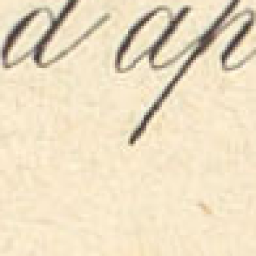 d ap